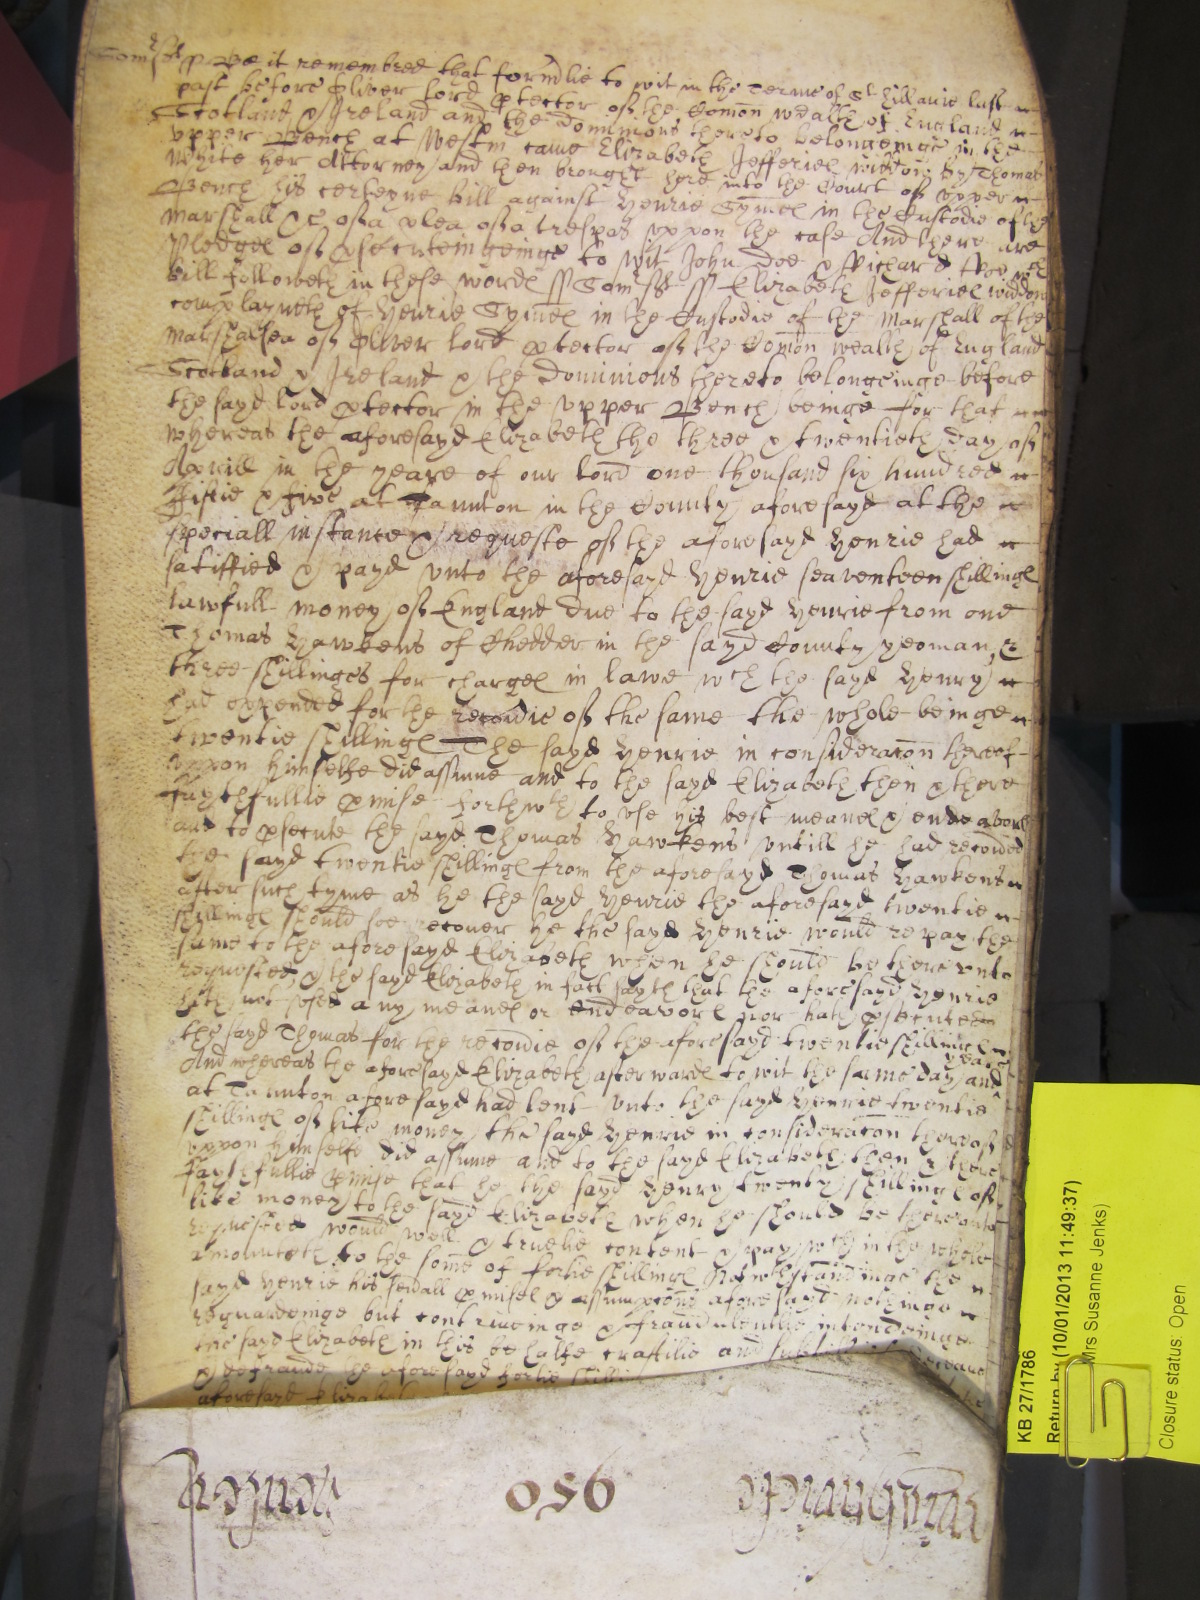 Som̃sett ss Bee it remembred that form̃lie to wit in the Terme of St Hillarie last
past before Oliver Lord Ptector of the Com̃on wealth of England
Scotland & Ireland and the Dominions thereto belongeinge in the
upper Bench at Westm̃ came Elizabeth Jefferies widdow by Thomas
White her Attorney and then brought here into the Court of upper
Bench his certeyne bill against Henrie Symes in the Custodie of the
Marshall &c of a plea of a trespas uppon the case And there are
pledges of psecuteinge to wit John Doe & Richard Roe wch
bill followeth in these words ss Som̃sett ss Elizabeth Jefferies widdow
complayneth of Henrie Symes in the Custodie of the Marshall of the
Marshalsea of Oliver Lord Ptector of the Com̃on wealth of England
Scotland & Ireland & the Dominions thereto belongeinge before
the sayd Lord Ptector in the upper Bench beinge for that
whereas the aforesayd Elizabeth the three & twentieth day of
Aprill in the yeare of our Lord one thousand six hundred
Fiftie & five at Taunton in the County aforesayd at the
speciall instance & requeste of the aforesayd Henrie had
satisfied & payd unto the aforesayd Henrie seaventeen shillings
lawfull money of England due to the sayd Henrie from one
Thomas Hawkens of Chedder in the sayd County yeoman, &
three shillinges for charges in lawe wch the sayd Henry
had expended for the recovie of the same the whole beinge
twentie shillings The sayd Henrie in consideracõn thereof
uppon himselfe did assume and to the sayd Elizabeth then & there
faythfullie pmise forthwth to use his best meanes & endeavors
and to psecute the sayd Thomas Hawkens untill he had recovred
the sayd twentie shillings from the aforesayd Thomas Hawkens
after such tyme as he the sayd Henrie the aforesayd twentie
shillings should soe recover he the sayd Henrie would repay the
same to the aforesayd Elizabeth when he should be thereunto
requested, & the sayd Elizabeth in fact sayth that the aforesayd Henrie
hath not used any meanes or endeavors nor hath psecuted
the sayd Thomas for the recovie of the aforesayd twentie shillings
And whereas the aforesayd Elizabeth afterwards to wit the same day and yeare
at Taunton aforesayd had lent unto the sayd Henrie twentie
shillings of like money the sayd Henrie in consideracõn thereof
uppon himselfe did assume and to the sayd Elizabeth then & there
faythfullie pmise that he the sayd Henry twenty shillings of
like money to the sayd Elizabeth when he should be thereunto
requested would well & truelie content & pay wch in the whole
amounteth to the some of fortie shillings Notwthstandinge the
sayd Henrie his sevall pmises & assumpcõns aforesayd nothinge
reguardeinge but contriveinge & fraudulentlie intendeinge
the sayd Elizabeth in this behalfe craftilie and
& defraude the aforesayd fortie shillings
aforesayd Elizabeth
056
KB 27/1786
Return by (10/01/2013 11:49:37)
Mrs Susanne Jenks)
Closure status: Open